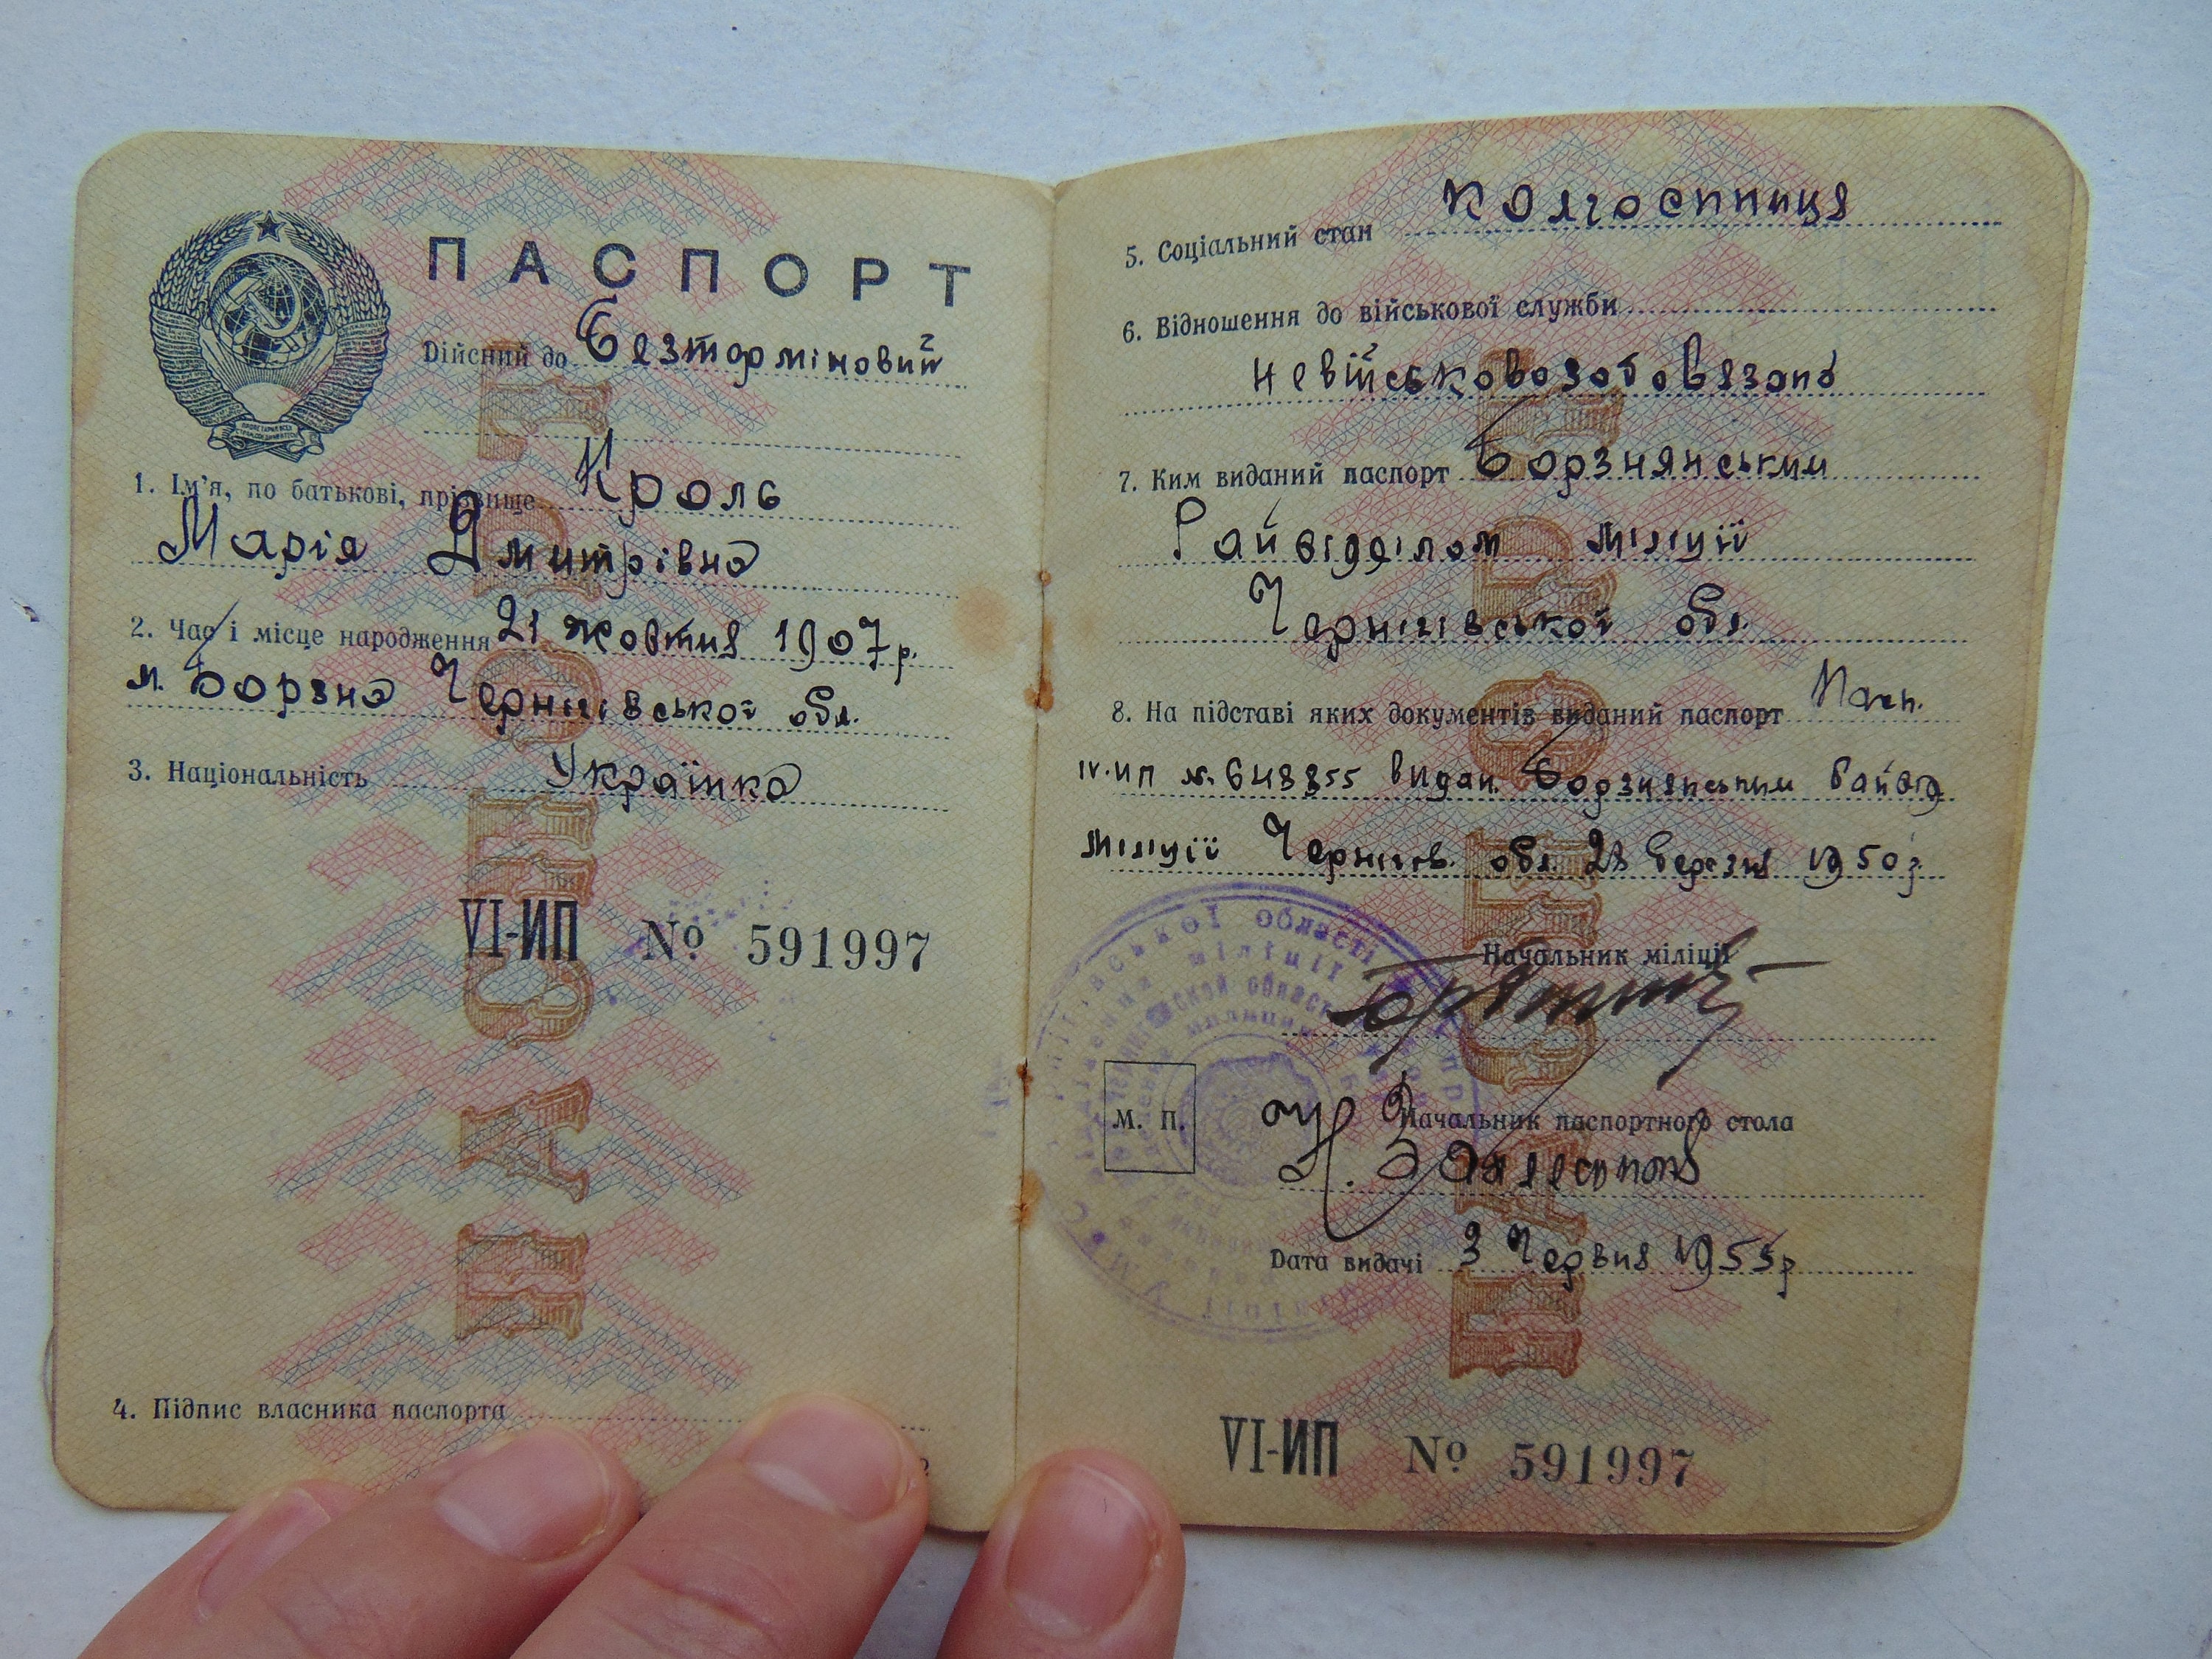 ПАСПОРТ
Дійсний до Безтерміновий
1. Ім'я, по батькові, прізвище Кроль
Марія Дмитрівна
2. Час і місце народження 21 жовтня 1907 р.
м. Борзна Чернігівської обл.
3. Національність Українка
VI-ИП № 591997
4. Підпис власника паспорта
5. Соціальний стан колгоспниця
6. Відношення до військової служби
невійськовозобовязана
7. Ким виданий паспорт Борзнянським
Райвідділом міліції
Чернігівської обл.
8. На підставі яких документів виданий паспорт Пасп.
IV-ИП №. 648855 видан. Борзнянським Райвід
міліції Черніг. обл. 28 березня 1950 р.
Начальник міліції
М. П.
Начальник паспортного стола
Дата видачі 3 Червня 1955 р
VI-ИП № 591997